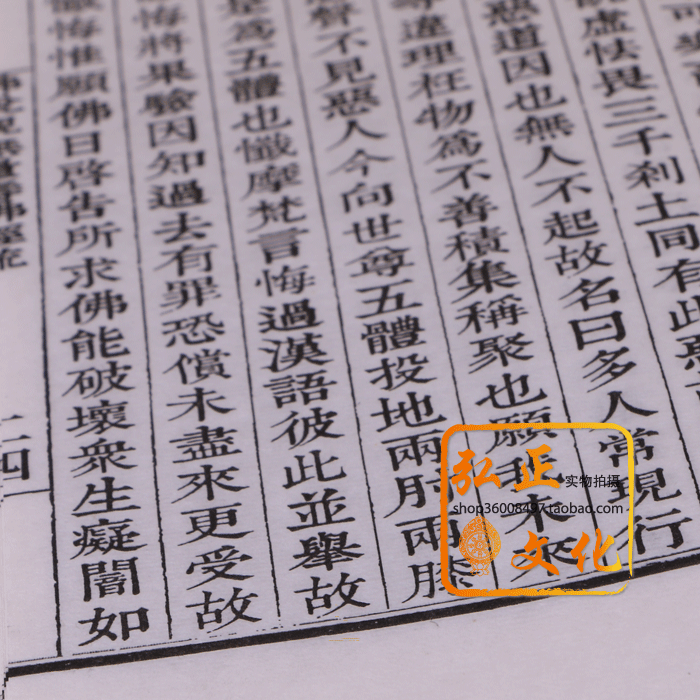 虛怯畏三千剎土同有此惡
惡道因也無人不起故名曰多人常現行
違理枉物為不善積集稱聚也願我未來
聲不見惡人今向世尊五體投地兩肘兩膝
為五體也懺摩梵言悔過漢語彼此並舉故
悔將果驗因知過去有罪恐償未盡來更受故
懺悔惟願佛日啓告所求佛能破壞眾生癡闇如
弘正
实物拍摄
shop36008497.taobao.com
文化